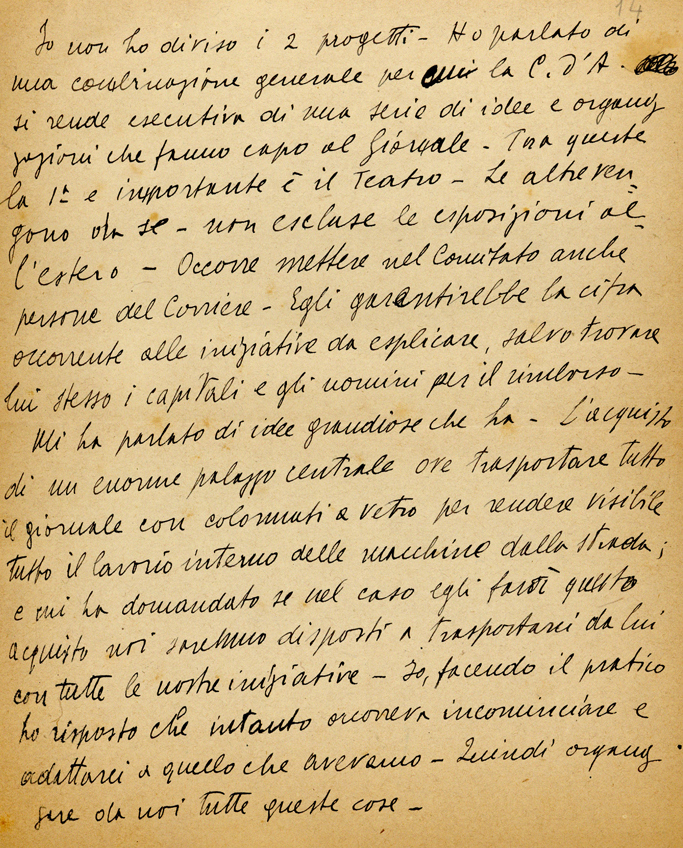 14
Io non ho diviso i 2 progetti – Ho parlato di
una combinazione generale per cui la C. D'A.
si rende esecutiva di una serie di idee e organiz
zazioni che fanno capo al Giornale – Tra queste
la 1ª e importante è il Teatro – Le altre ven
gono da se – non escluse le esposizioni al
l'estero – Occorre mettere nel Comitato anche
persone del Corriere – Egli garantirebbe la cifra
occorrente alle iniziative da esplicare, salvo trovare
lui stesso i capitali e gli uomini per il rimborso –
Mi ha parlato di idee grandiose che ha – L'acquisto
di un enorme palazzo centrale ove trasportare tutto
il giornale con colonnati a vetro per rendere visibile
tutto il lavorio interno delle macchine dalla strada;
e mi ha domandato se nel caso egli farà questo
acquisto noi saremmo disposti a trasportarci da lui
con tutte le nostre iniziative – Io, facendo il pratico
ho risposto che intanto occorreva incominciare e
adattarci a quello che avevamo – Quindi organiz
zare da noi tutte queste cose –